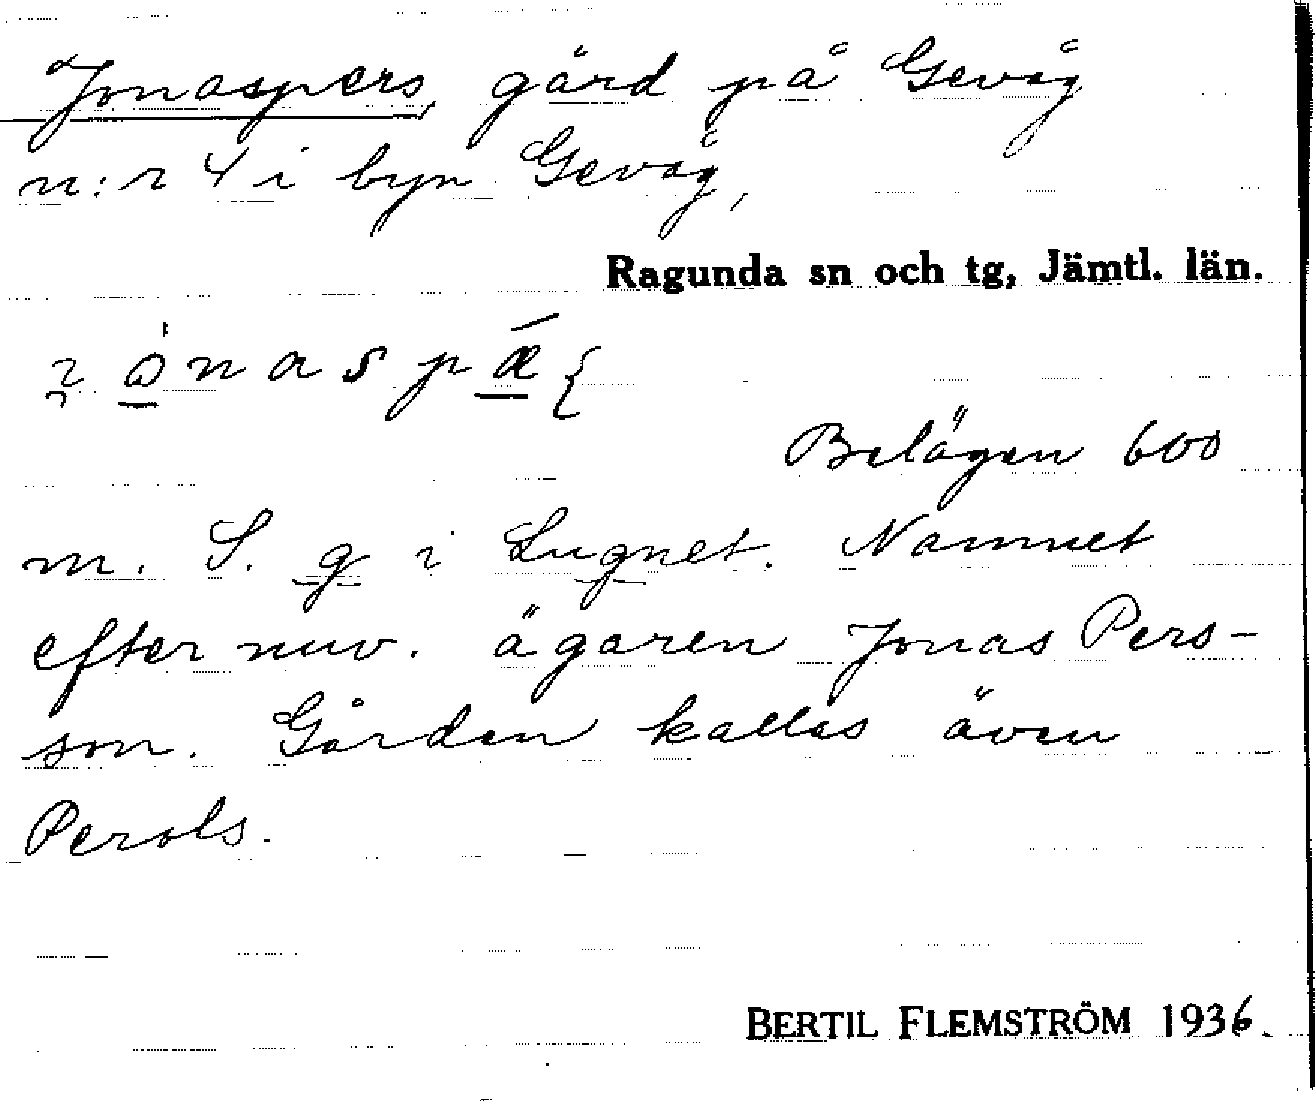 Jonaspers, gård på Gevåg
n:r 4 i byn Gevåg,
Ragunda sn och tg, Jämtl. län.
Belägen 600
m. S. g i Lugnet. Namnet
efter nuv. ägaren Jonas Pers-
son. Gården kallas även
Perols.
BERTIL FLEMSTRÖM 1936.